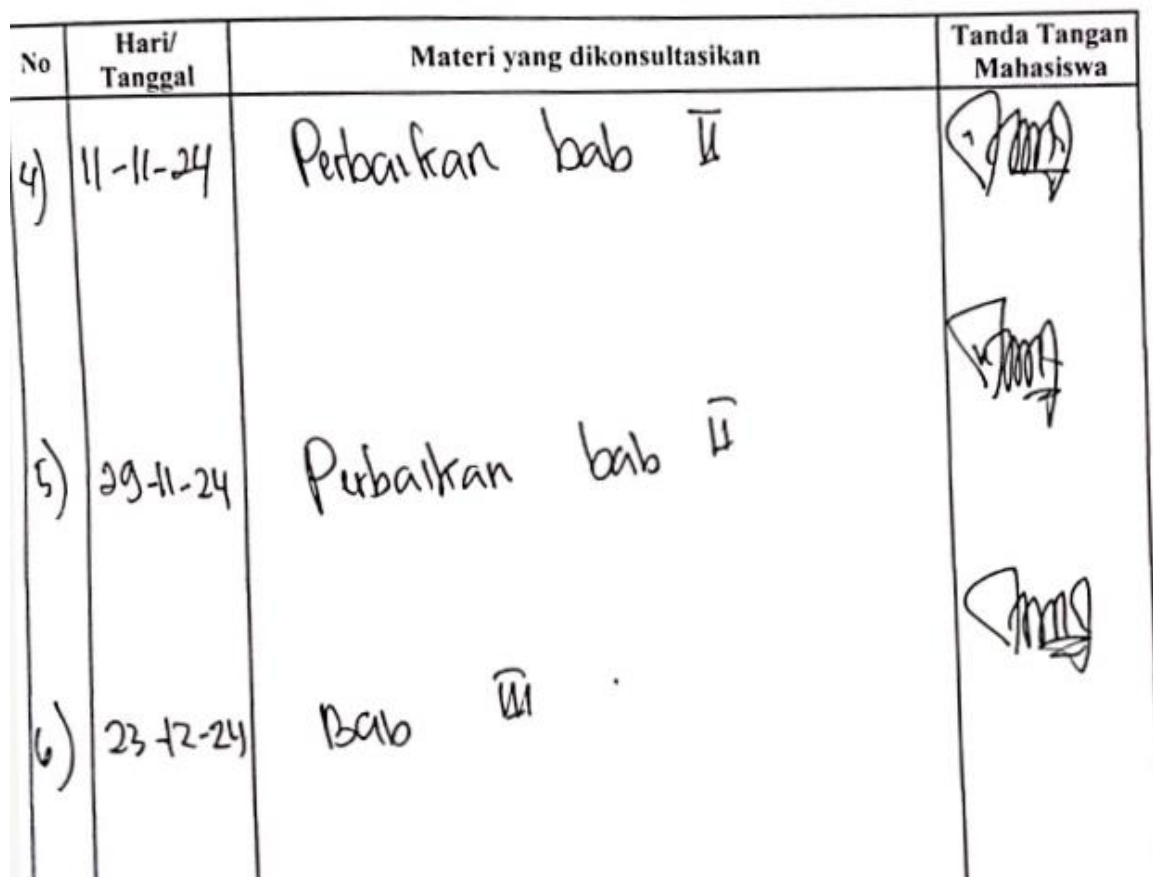 No Hari/ Tanggal Materi yang dikonsultasikan Tanda Tangan Mahasiswa
4) 11-11-24 Perbaikan bab II
5) 29-11-24 Perbaikan bab II
6) 23-12-24 Bab III